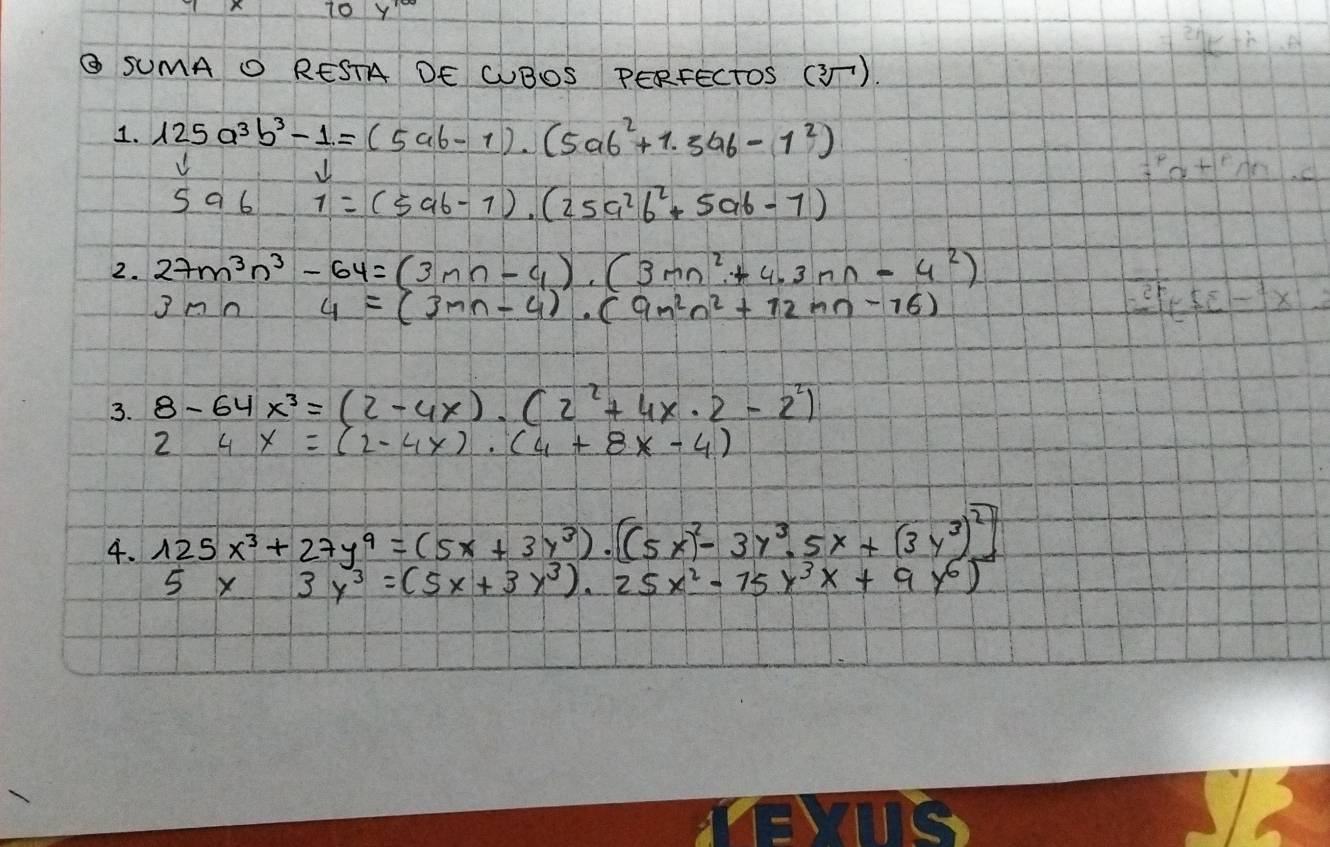 x 10 y¹⁰⁰
③ SUMA O RESTA DE CUBOS PERFECTOS (∛).
1. 125a³b³ - 1 = (5ab - 1) . (5ab² + 1.5ab - 1²)
↓ ↓
5ab 1 = (5ab - 1) . (25a²b² + 5ab - 1)
2. 27m³n³ - 64 = (3mn - 4) . (3mn² + 4.3mn - 4²)
3mn 4 = (3mn - 4) . (9m²n² + 12mn - 16)
3. 8 - 64x³ = (2 - 4x) . (2² + 4x . 2 - 2²)
2 4x = (2 - 4x) . (4 + 8x - 4)
4. 125x³ + 27y⁹ = (5x + 3y³) . [(5x)² - 3y³ . 5x + (3y³)²]
5x 3y³ = (5x + 3y³) . 25x² - 15y³x + 9y⁶)
LEXUS